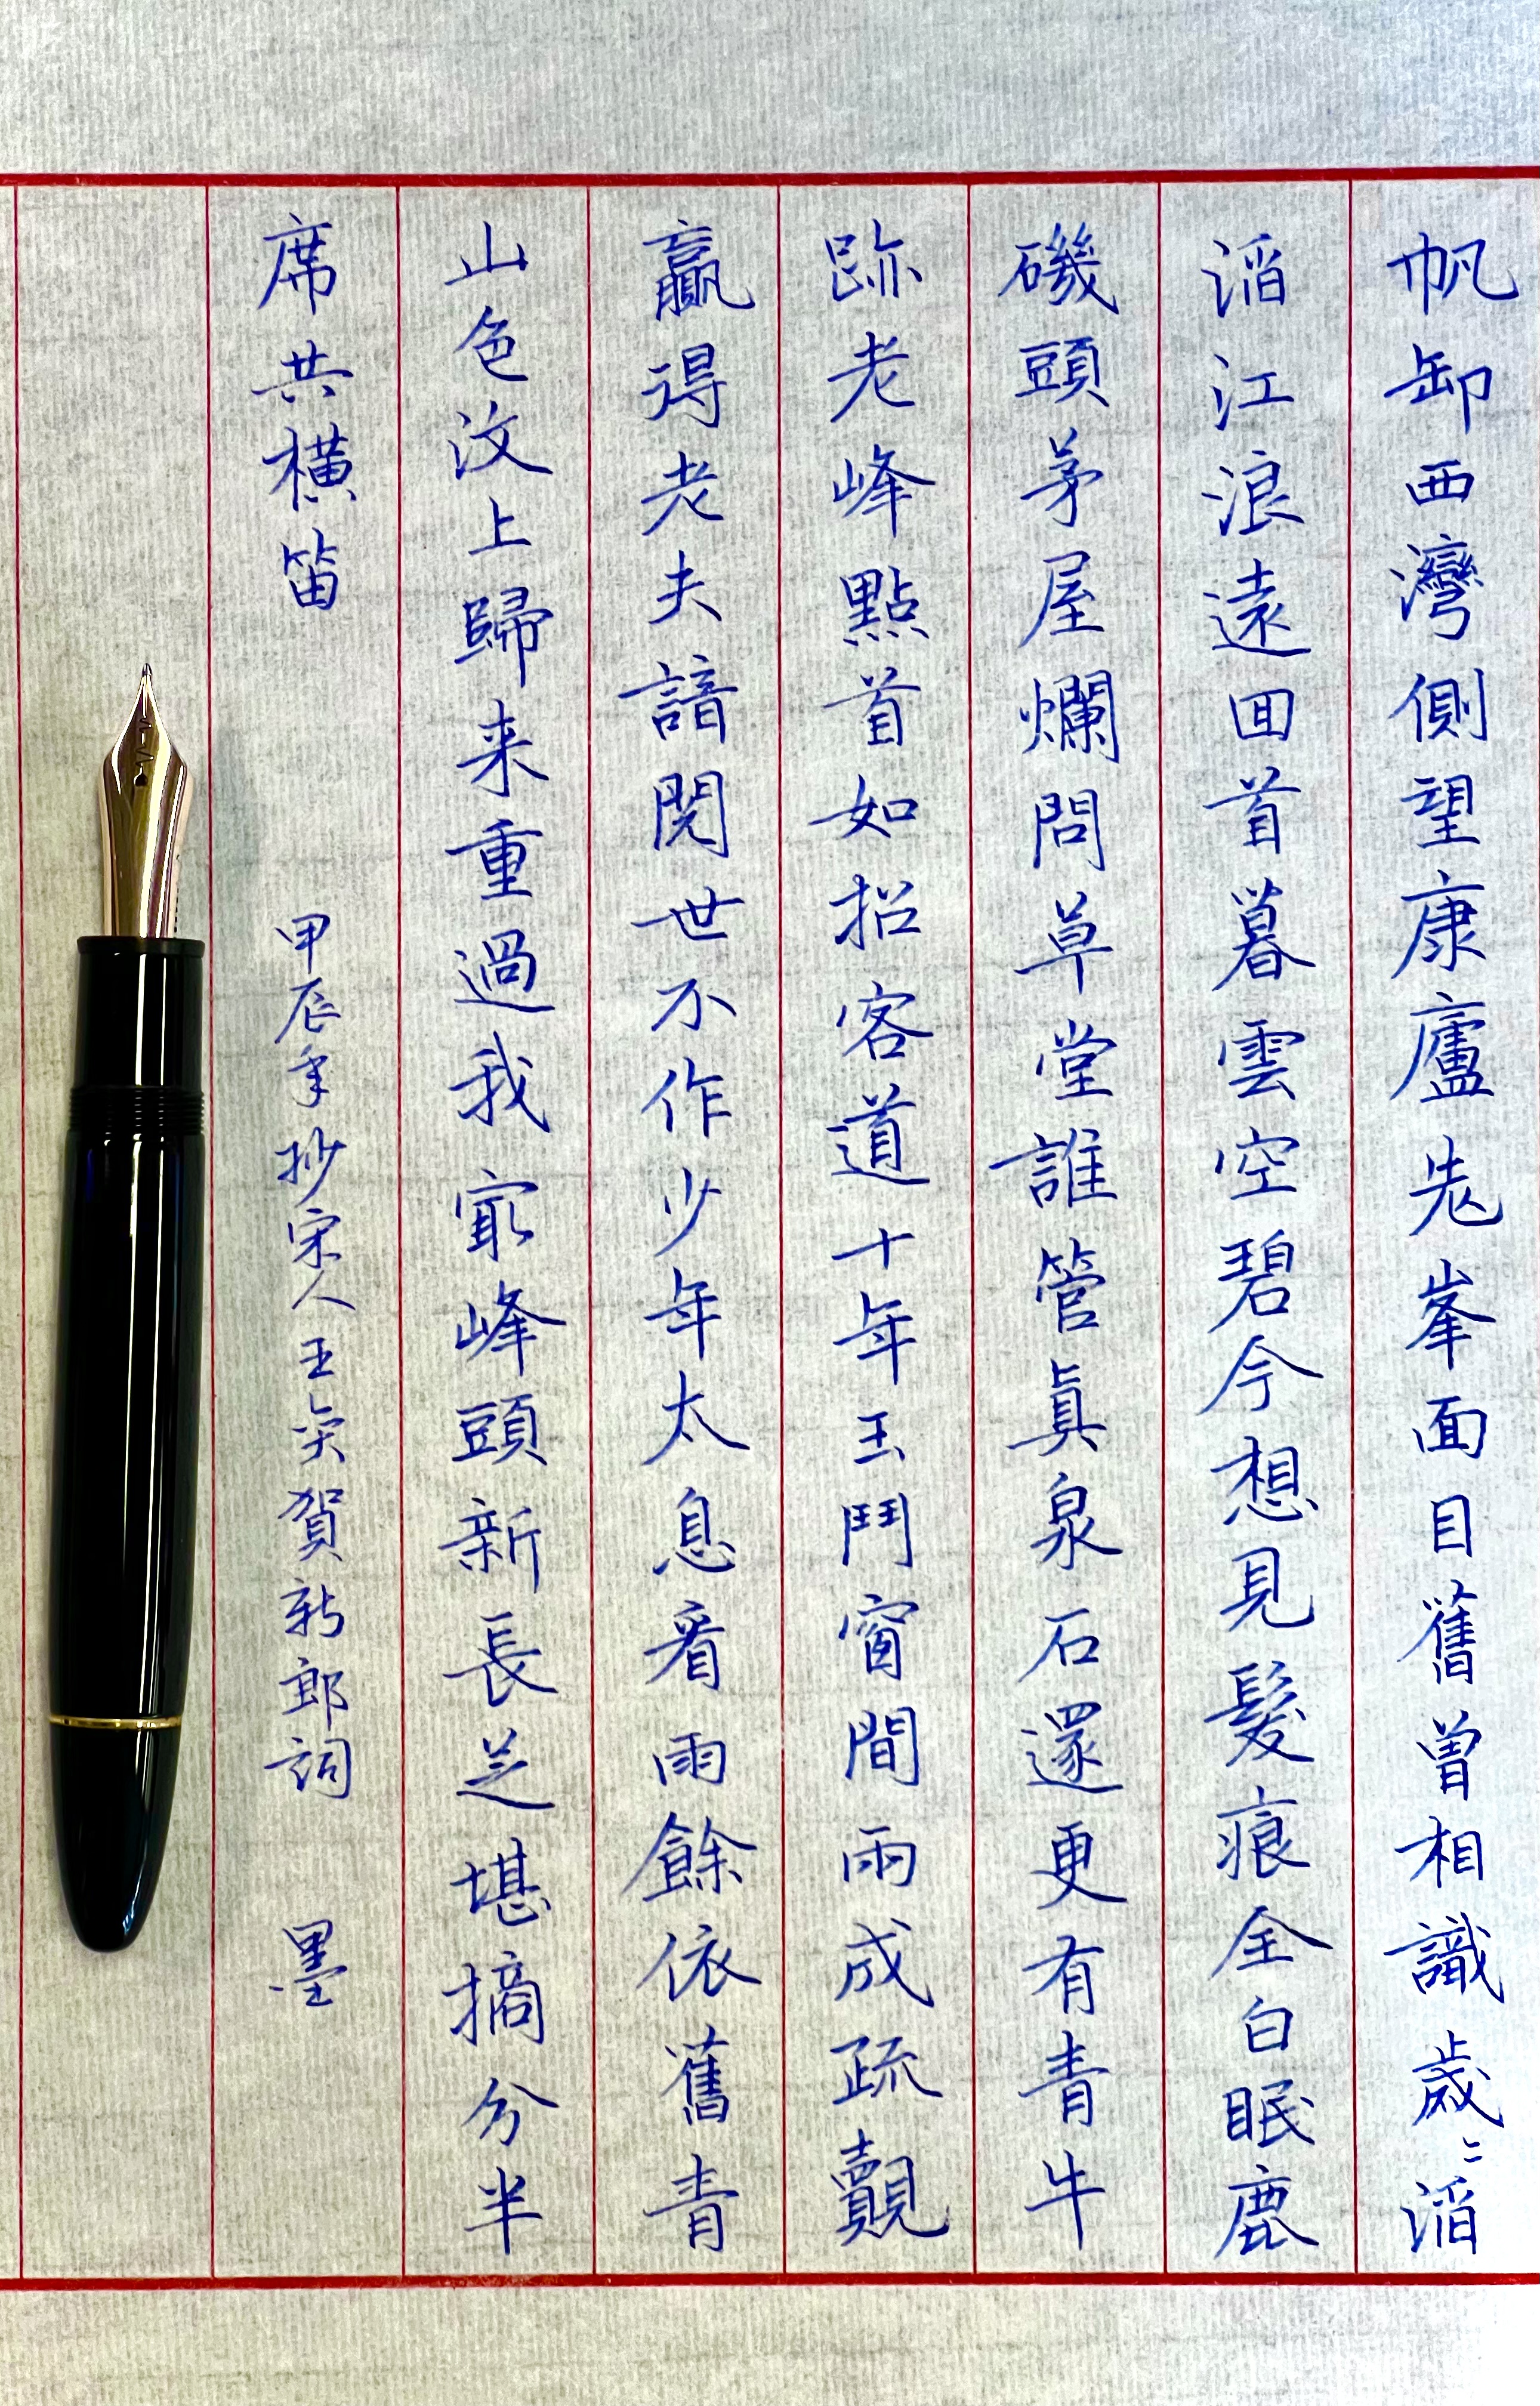 帆卸西灣側望康廬先峯面目舊曾相識歲〻滔
滔江浪遠回首暮雲空碧今想見髮痕全白眠鹿
磯頭茅屋爛問草堂誰管眞泉石還更有青牛
跡老峰點首如招客道十年玉鬥窗間雨成疏覿
贏得老夫諳閱世不作少年太息看雨餘依舊青
山色汶上歸来重過我㝡峰頭新長芝堪摘分半
席共橫笛
甲辰年抄宋人王奕賀新郎詞 墨